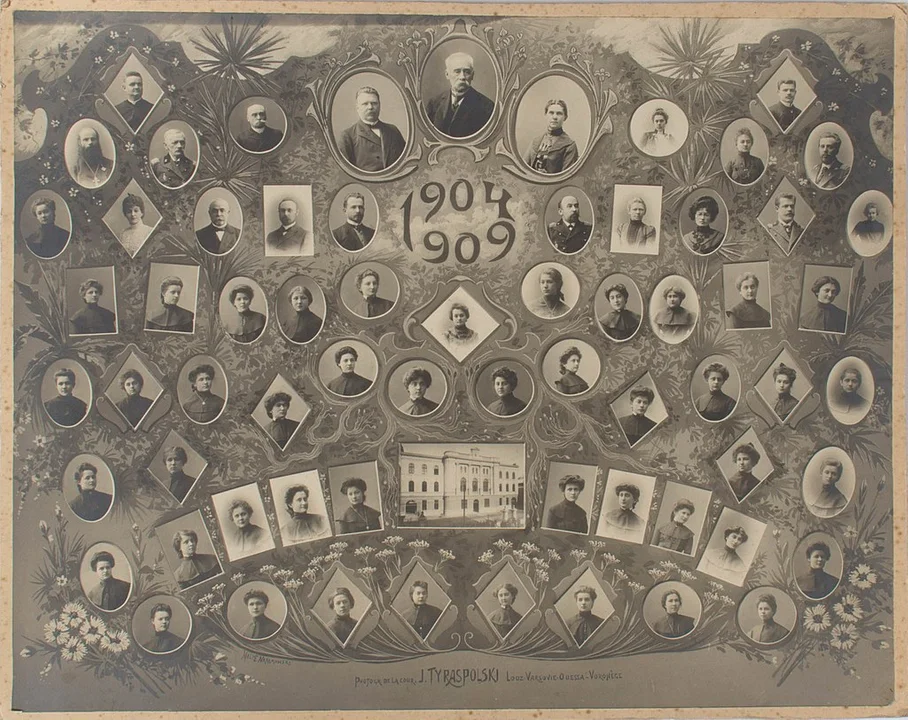 1904
1909
PHOTOGR. DE LA COUR, J. TYRASPOLSKI LODZ-VARSOVIE-ODESSA-VORONÈGE